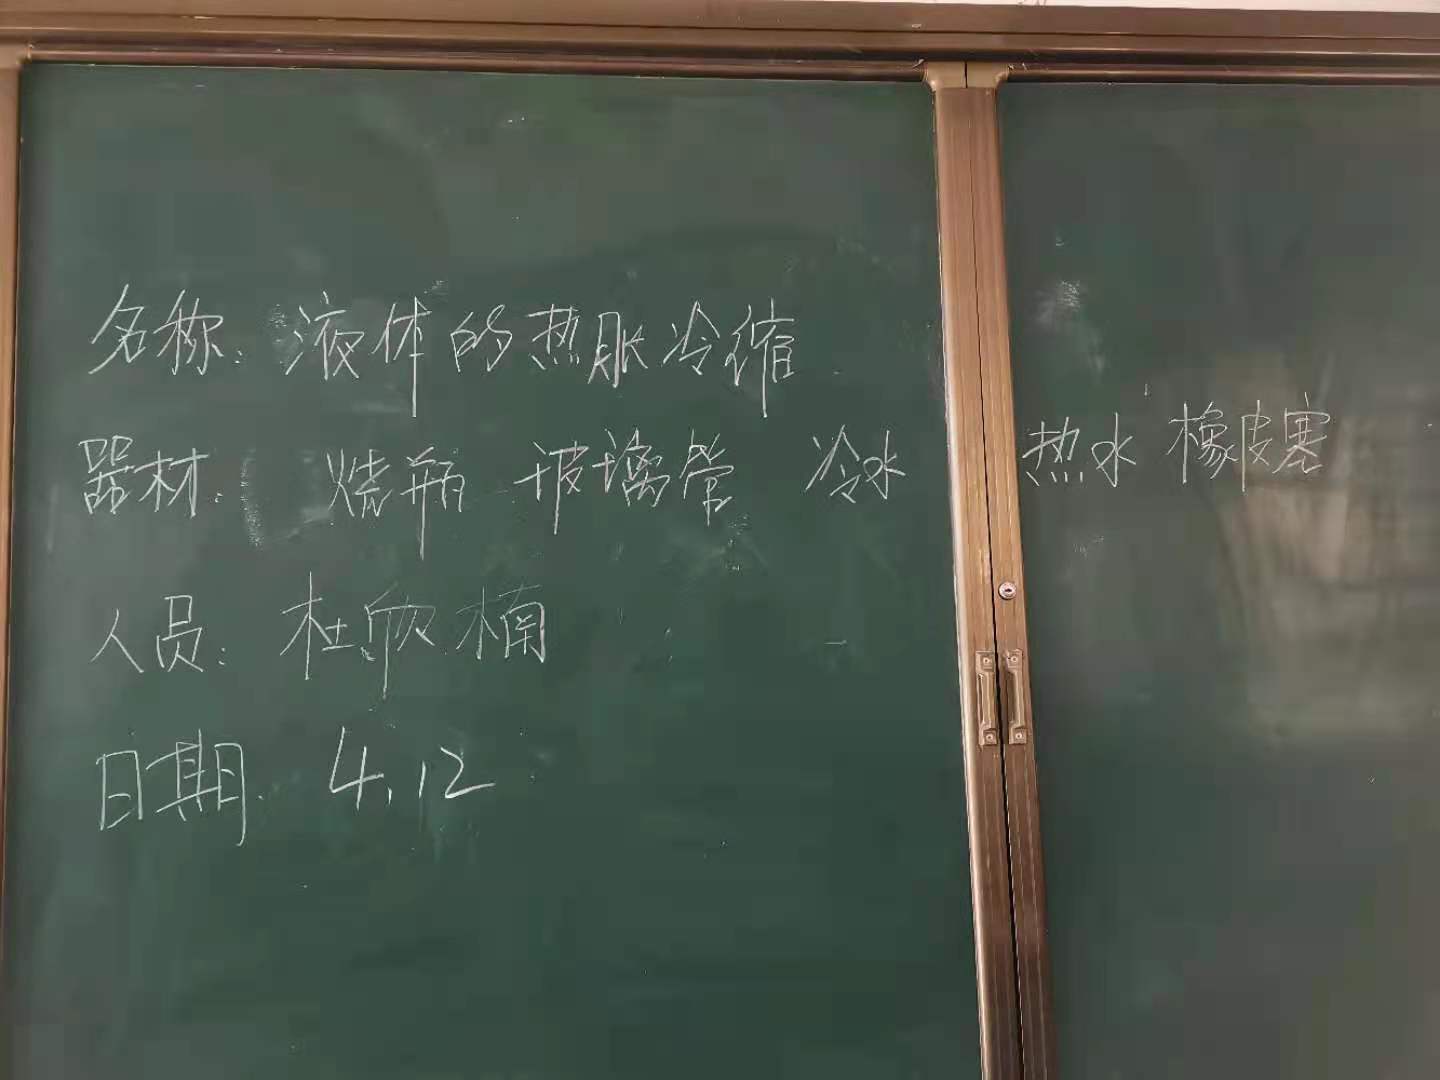 名称：液体的热胀冷缩
器材：烧瓶 玻璃管 冷水 热水 橡皮塞
人员：杜欣楠
日期：4.12